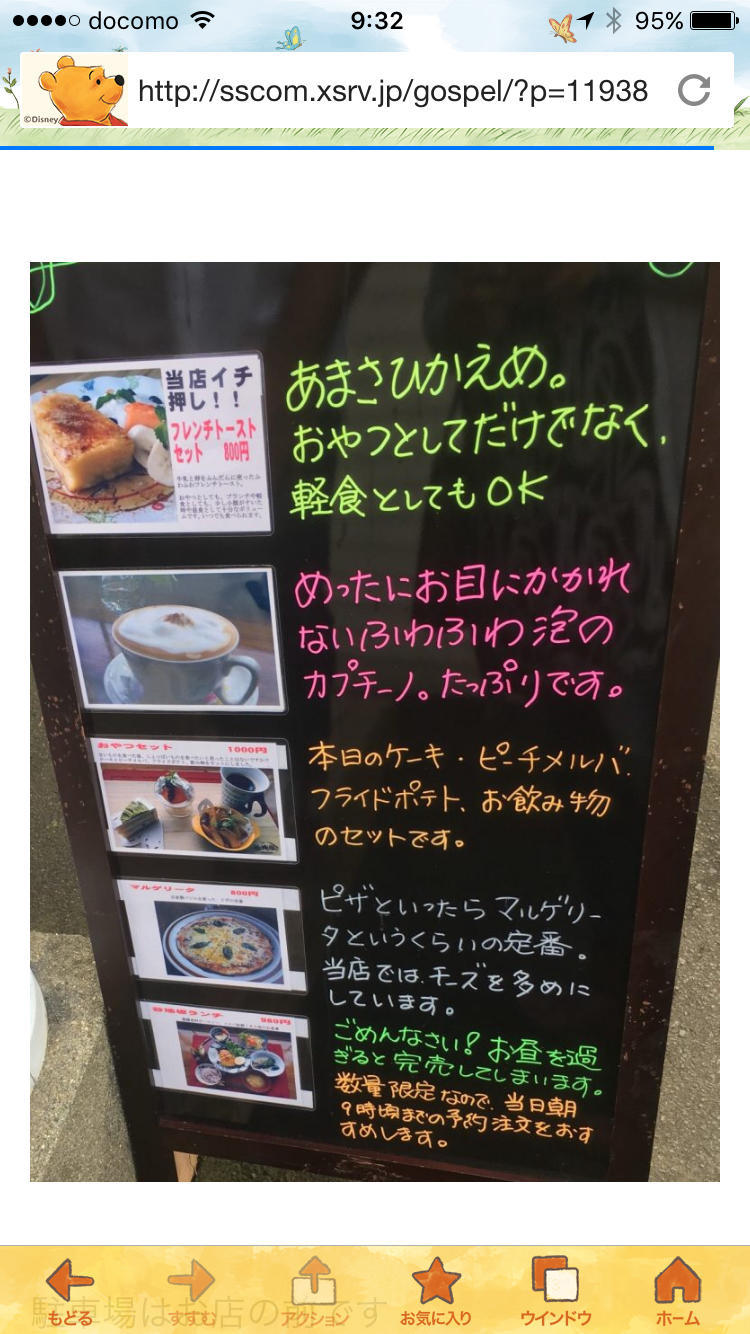 docomo
9:32
95%
©Disney
http://sscom.xsrv.jp/gospel/?p=11938
当店イチ
押し！！
フレンチトースト
セット 800円
牛乳と卵をふんだんに使ったふ
わふわフレンチトースト。
あまさひかえめ。
おやつとしてだけでなく、
軽食としてもOK
めったにお目にかかれ
ないふわふわ泡の
カプチーノ。たっぷりです。
おやつセット 1000円
本日のケーキ・ピーチメルバ、
フライドポテト、お飲み物
のセットです。
マルゲリータ 800円
ピザといったらマルゲリー
タというくらいの定番。
当店では、チーズを多めに
しています。
ランチ 980円
ごめんなさい！お昼を過
ぎると完売してしまいます。
数量限定なので、当日朝
9時頃までの予約注文をおす
すめします。
駐車場はお店の前です
もどる
すすむ
アクション
お気に入り
ウインドウ
ホーム